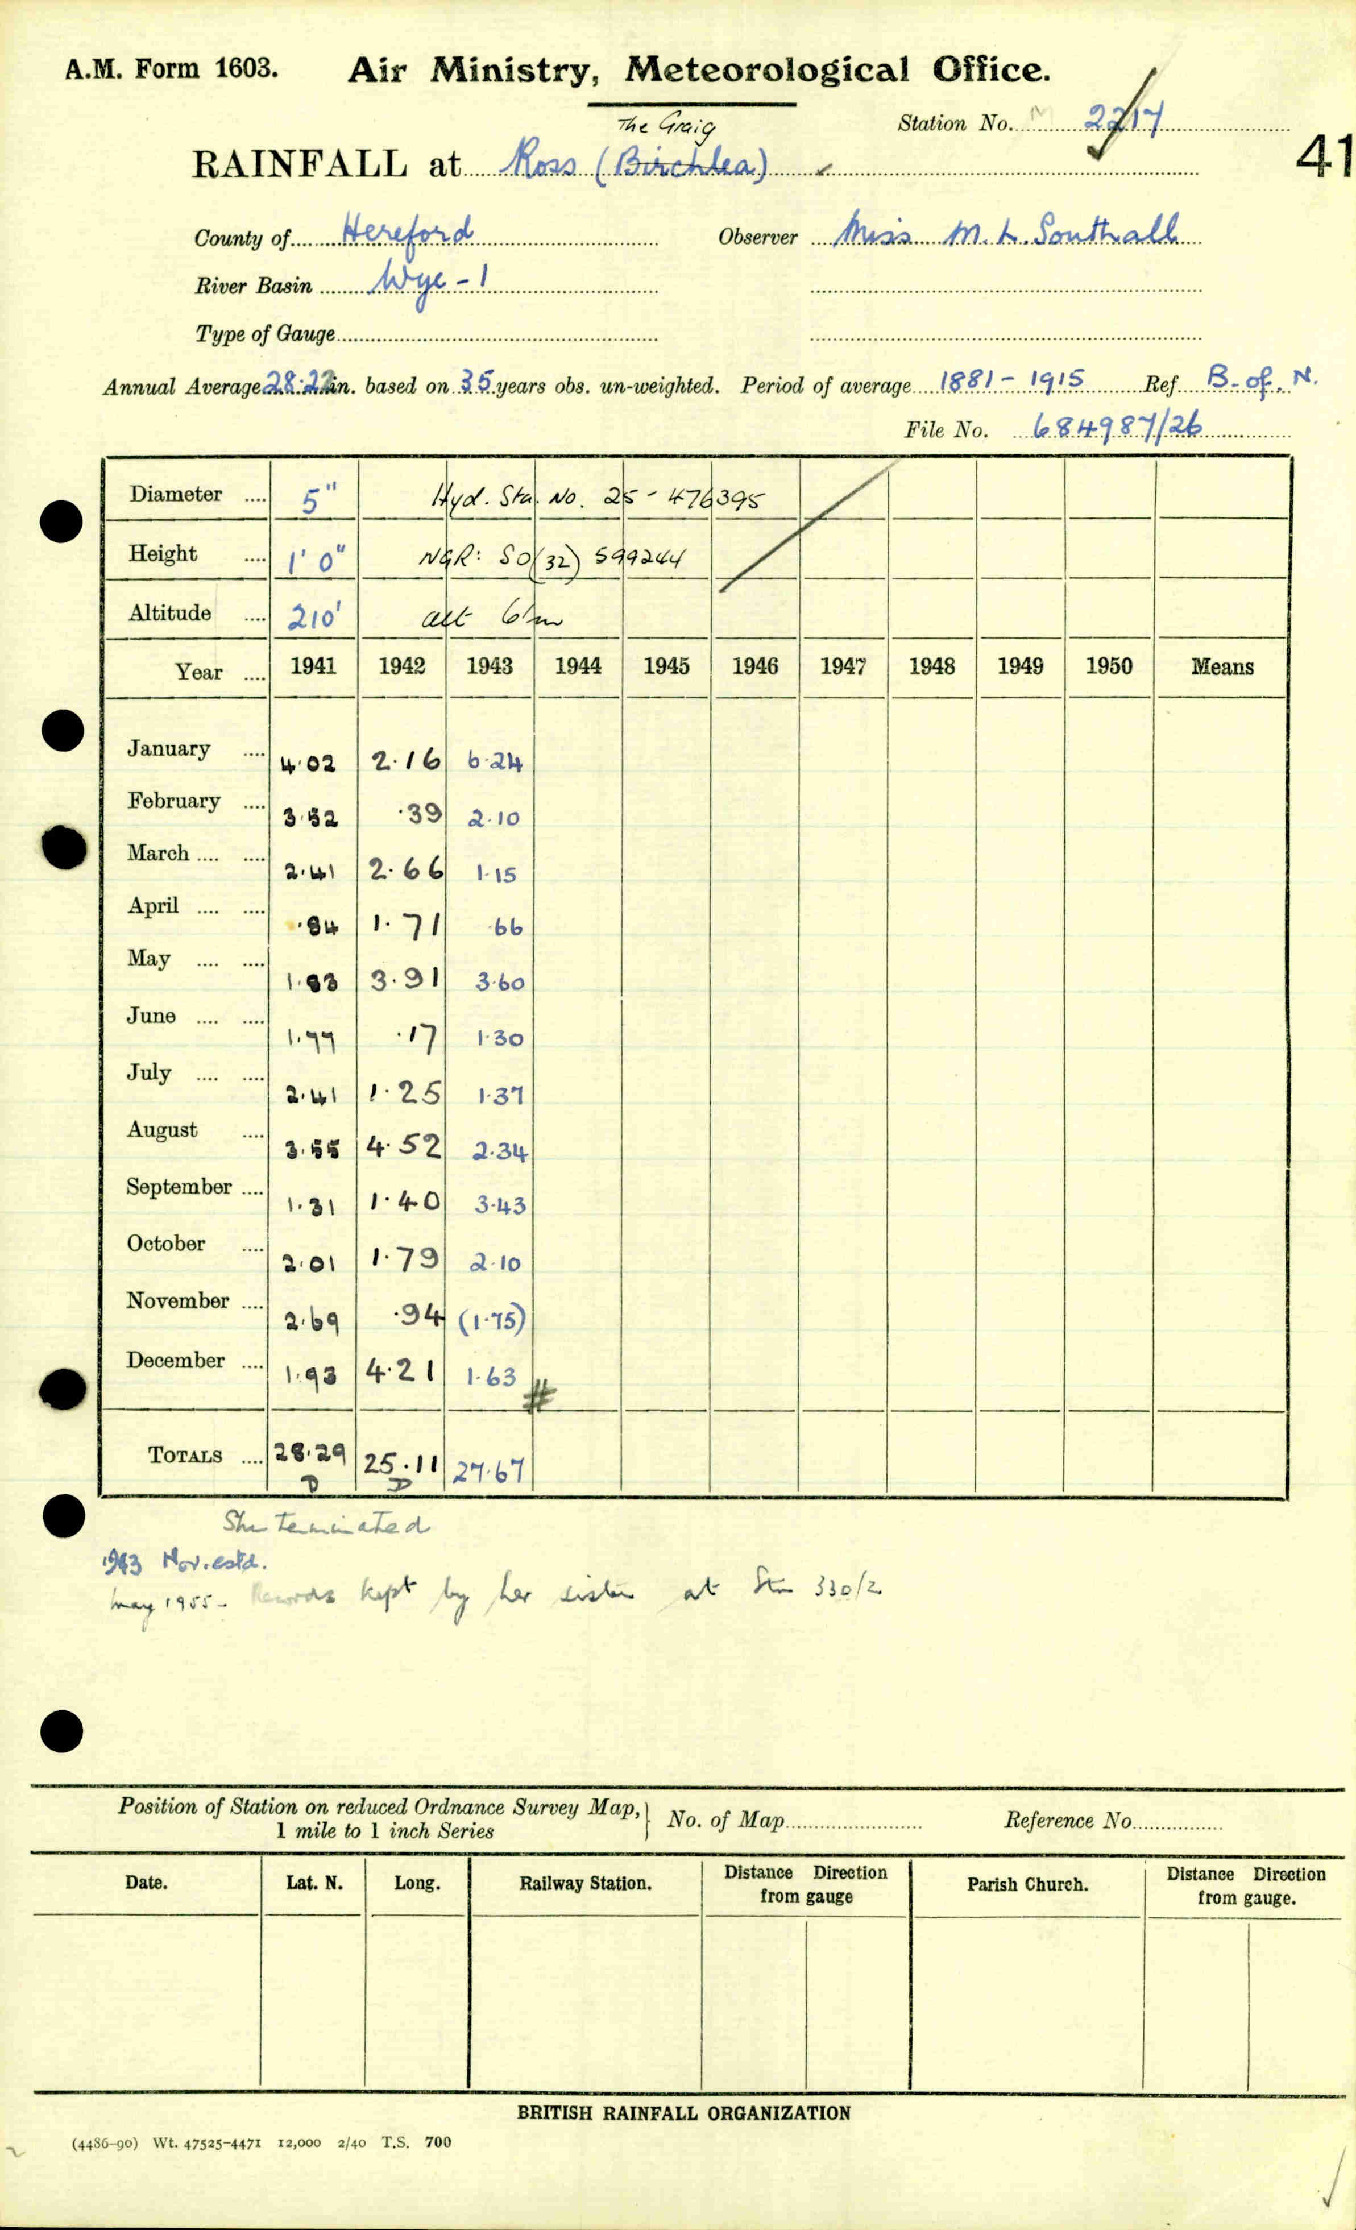 A.M. Form 1603. Air Ministry, Meteorological Office.
Station No. M 2217
41
The Graig
RAINFALL at Ross (Birchlea)
County of Hereford Observer Miss M. L. Southall
River Basin Wye - 1
Type of Gauge
Annual Average 28.22 in. based on 35 years obs. un-weighted. Period of average 1881 - 1915 Ref B. of. N.
File No. 684987/26
Diameter .... 5" Hyd. Sta. No. 25 - 476395
Height .... 1' 0" NGR: SO (32) 599244
Altitude .... 210' alt 61m
Year .... 1941 1942 1943 1944 1945 1946 1947 1948 1949 1950 Means
January .... 4.02 2.16 6.24
February .... 3.52 .39 2.10
March .... .... 2.41 2.66 1.15
April .... .... .84 1.71 .66
May .... .... 1.83 3.91 3.60
June .... .... 1.77 .17 1.30
July .... .... 2.41 1.25 1.37
August .... 3.55 4.52 2.34
September .... 1.31 1.40 3.43
October .... 2.01 1.79 2.10
November .... 2.69 .94 (1.75)
December .... 1.93 4.21 1.63 #
TOTALS .... 28.29 25.11 27.67
D D
Stn terminated
1943 Nov. estd.
May 1955 - Records kept by her sister at Stn 330/2
Position of Station on reduced Ordnance Survey Map,} No. of Map Reference No.
1 mile to 1 inch Series
Date. Lat. N. Long. Railway Station. Distance Direction from gauge Parish Church. Distance Direction from gauge.
BRITISH RAINFALL ORGANIZATION
(4486-90) Wt. 47525-4471 12,000 2/40 T.S. 700